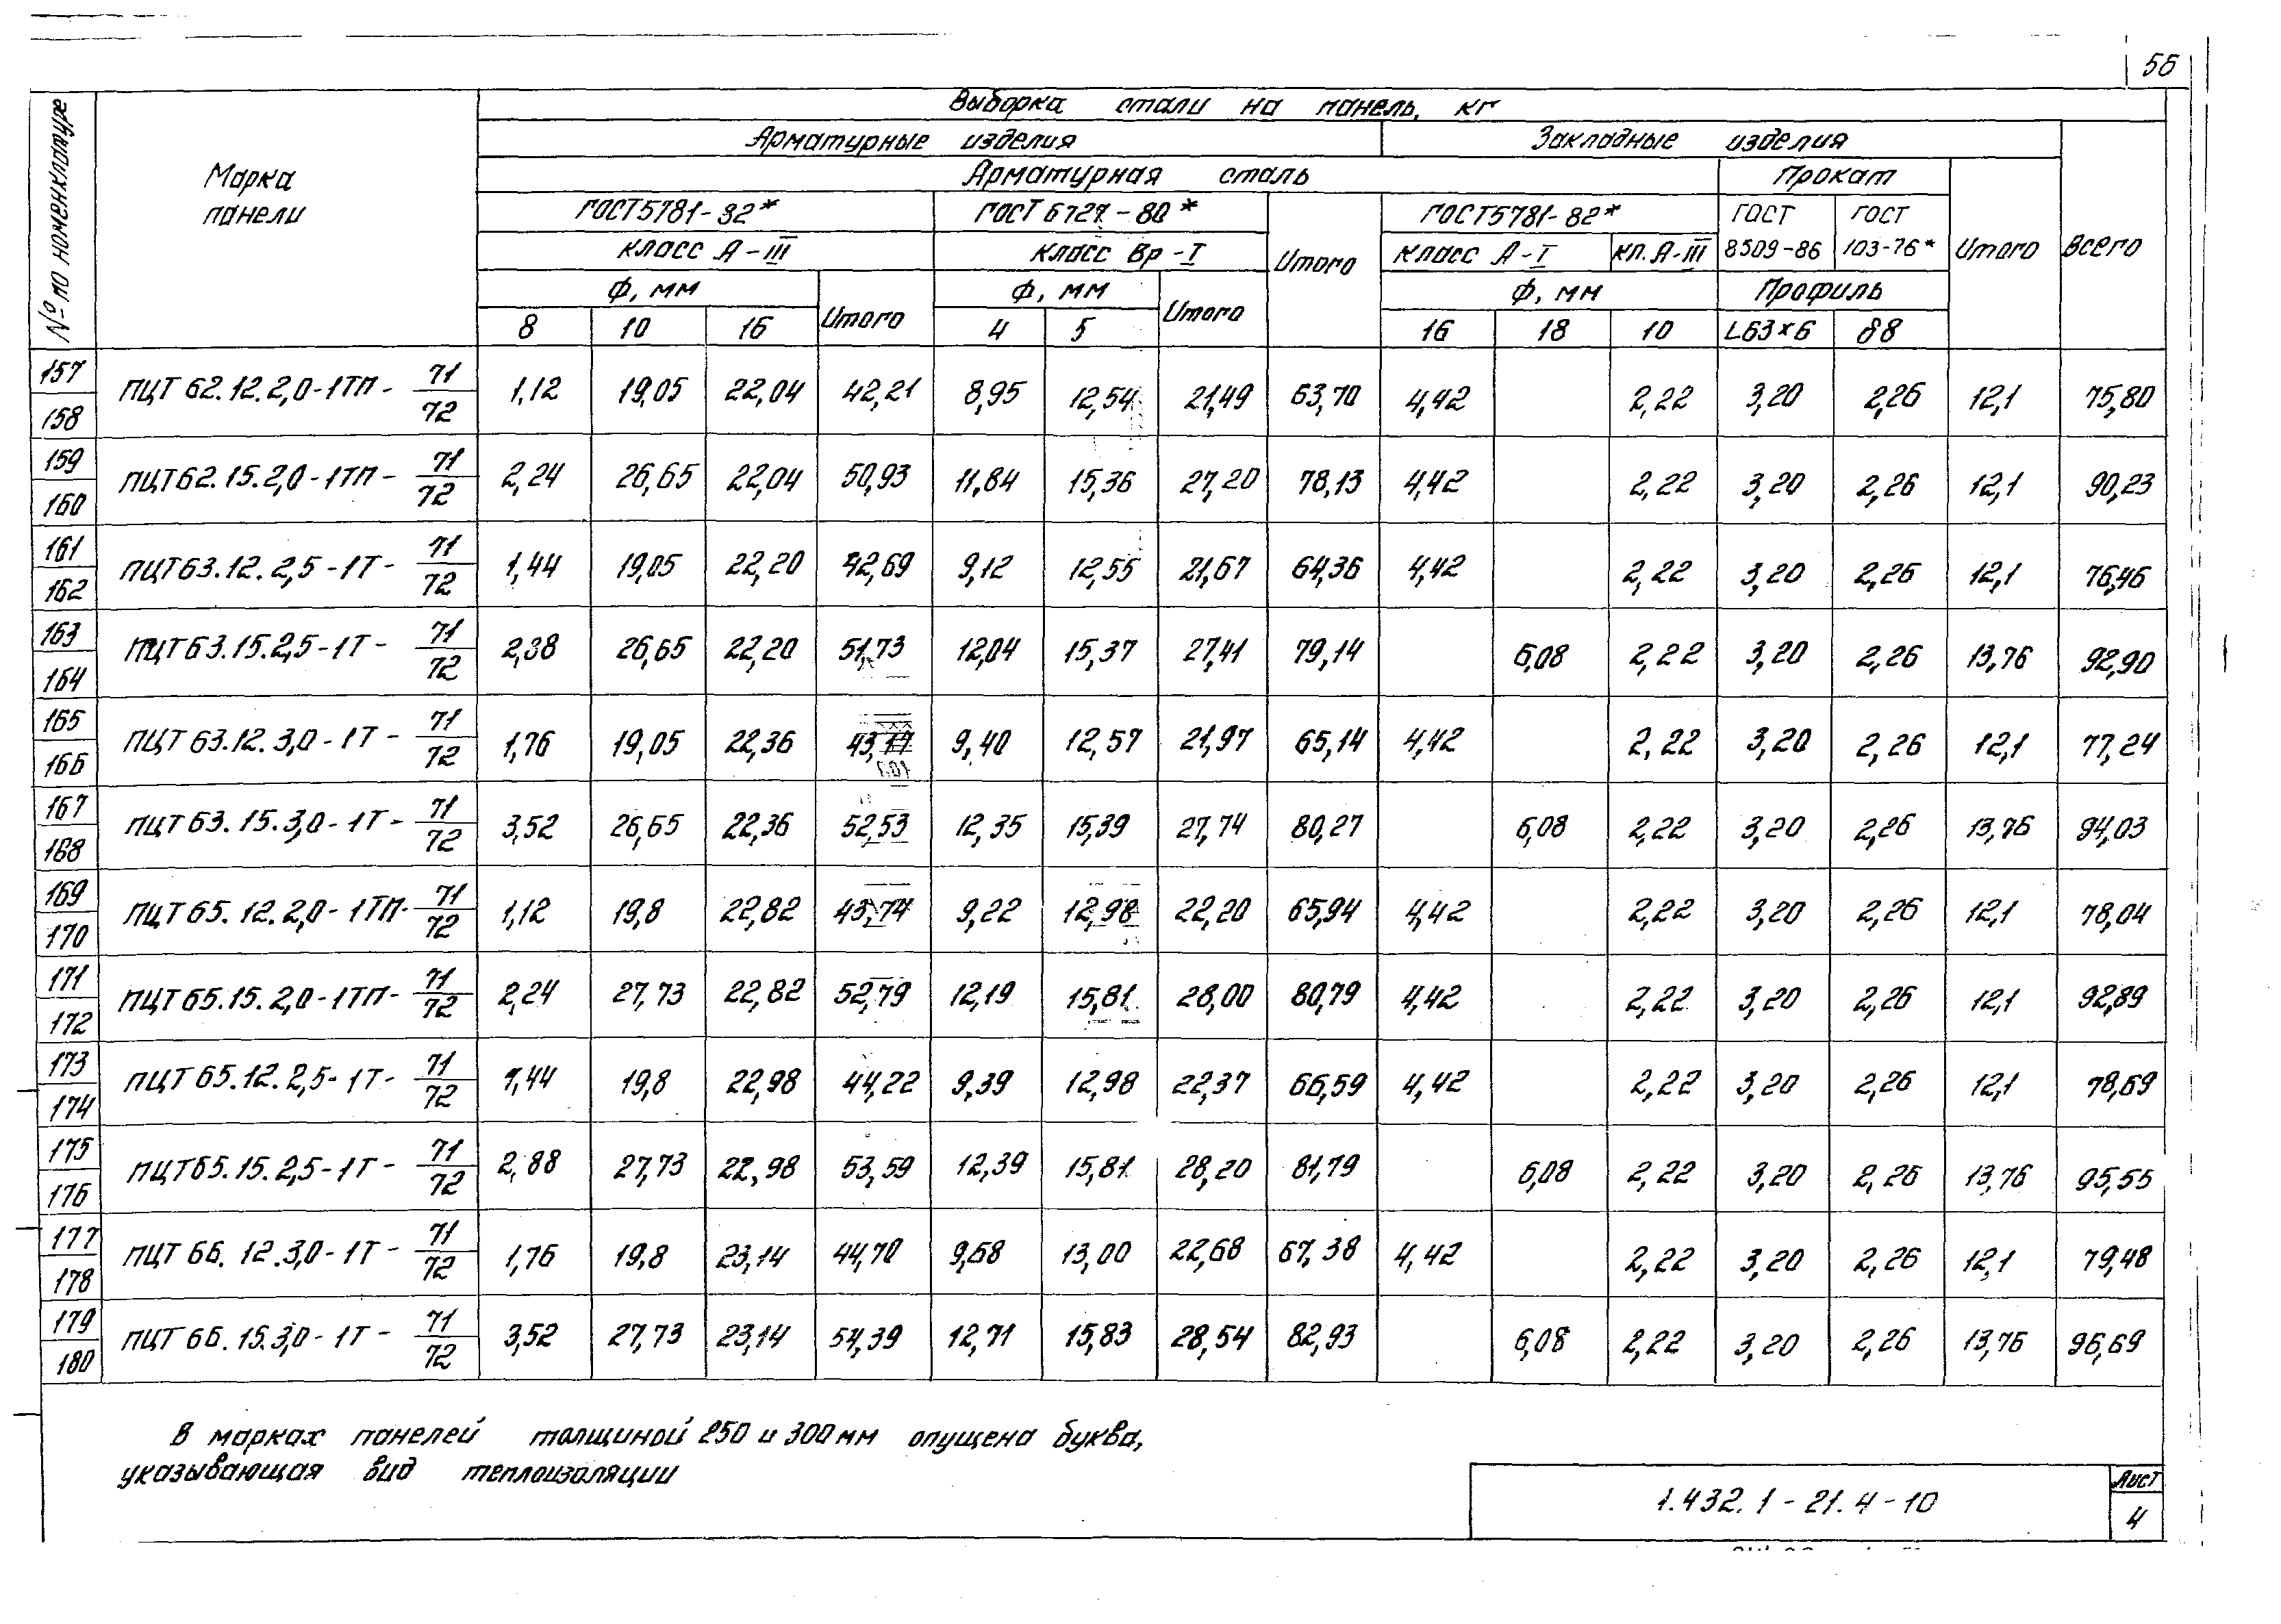 56
Выборка стали на панель, кг
№ по номенклатуре
Марка панели
Арматурные изделия
Закладные изделия
Всего
Арматурная сталь
Прокат
Итого
ГОСТ 5781-82*
ГОСТ 6727-80*
Итого
ГОСТ 5781-82*
ГОСТ 8509-86
ГОСТ 103-76*
класс А-III
класс Вр-I
класс А-I
кл. А-III
Ф, мм
Итого
Ф, мм
Итого
Ф, мм
Профиль
8 10 16 4 5 16 18 10 L63×6 δ8
157 158 ПЦТ 62.12.2,0-1ТП- 71/72 1,12 19,05 22,04 42,21 8,95 12,54 21,49 63,70 4,42 2,22 3,20 2,26 12,1 75,80
159 160 ПЦТ 62.15.2,0-1ТП- 71/72 2,24 26,65 22,04 50,93 11,84 15,36 27,20 78,13 4,42 2,22 3,20 2,26 12,1 90,23
161 162 ПЦТ 63.12.2,5-1Т- 71/72 1,44 19,05 22,20 42,69 9,12 12,55 21,67 64,36 4,42 2,22 3,20 2,26 12,1 76,46
163 164 ПЦТ 63.15.2,5-1Т- 71/72 2,38 26,65 22,20 51,73 12,04 15,37 27,41 79,14 6,08 2,22 3,20 2,26 13,76 92,90
165 166 ПЦТ 63.12.3,0-1Т- 71/72 1,76 19,05 22,36 9,40 12,57 21,97 65,14 4,42 2,22 3,20 2,26 12,1 77,24
167 168 ПЦТ 63.15.3,0-1Т- 71/72 3,52 26,65 22,36 52,53 12,35 15,39 27,74 80,27 6,08 2,22 3,20 2,26 13,76 94,03
169 170 ПЦТ 65.12.2,0-1ТП- 71/72 1,12 19,8 22,82 43,74 9,22 12,98 22,20 65,94 4,42 2,22 3,20 2,26 12,1 78,04
171 172 ПЦТ 65.15.2,0-1ТП- 71/72 2,24 27,73 22,82 52,79 12,19 15,81 28,00 80,79 4,42 2,22 3,20 2,26 12,1 92,89
173 174 ПЦТ 65.12.2,5-1Т- 71/72 1,44 19,8 22,98 44,22 9,39 12,98 22,37 66,59 4,42 2,22 3,20 2,26 12,1 78,69
175 176 ПЦТ 65.15.2,5-1Т- 71/72 2,88 27,73 22,98 53,59 12,39 15,81 28,20 81,79 6,08 2,22 3,20 2,26 13,76 95,55
177 178 ПЦТ 66.12.3,0-1Т- 71/72 1,76 19,8 23,14 44,70 9,68 13,00 22,68 67,38 4,42 2,22 3,20 2,26 12,1 79,48
179 180 ПЦТ 66.15.3,0-1Т- 71/72 3,52 27,73 23,14 54,39 12,71 15,83 28,54 82,93 6,08 2,22 3,20 2,26 13,76 96,69
В марках панелей толщиной 250 и 300 мм опущена буква,
указывающая вид теплоизоляции
1.432.1-21.4-10
Лист
4